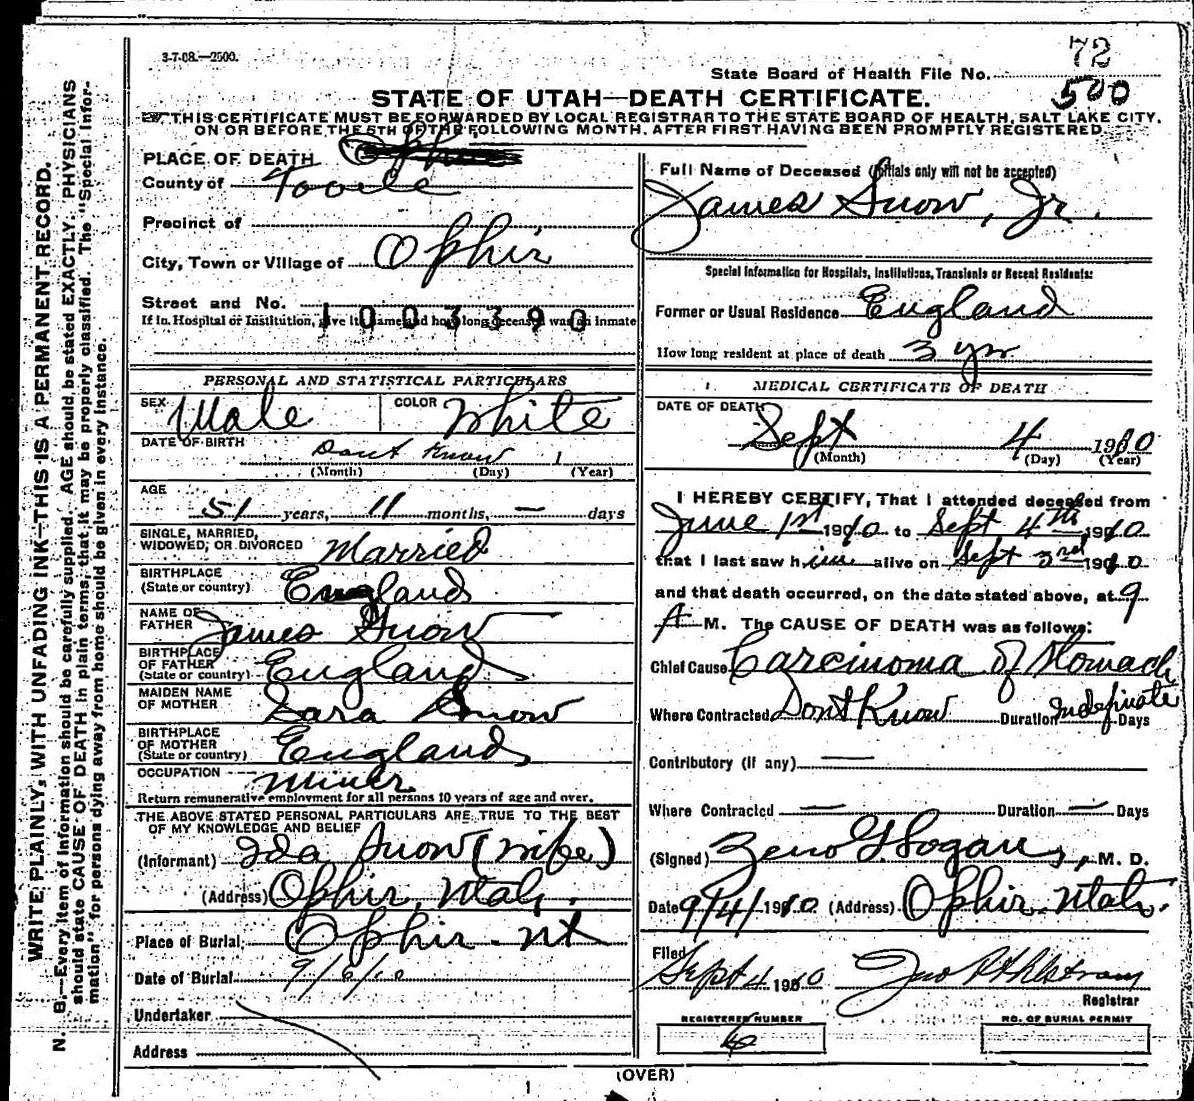 3-7-08.—2500.
72
State Board of Health File No. 500
STATE OF UTAH—DEATH CERTIFICATE.
THIS CERTIFICATE MUST BE FORWARDED BY LOCAL REGISTRAR TO THE STATE BOARD OF HEALTH, SALT LAKE CITY,
ON OR BEFORE THE 5TH OF THE FOLLOWING MONTH, AFTER FIRST HAVING BEEN PROMPTLY REGISTERED.
WRITE PLAINLY, WITH UNFADING INK—THIS IS A PERMANENT RECORD.
N. B.—Every item of information should be carefully supplied. AGE should be stated EXACTLY. PHYSICIANS
should state CAUSE OF DEATH in plain terms, that it may be properly classified. The "Special Infor-
mation" for persons dying away from home should be given in every instance.
PLACE OF DEATH
County of Tooele
Precinct of
City, Town or Village of Ophir
Street and No.
1003390
If in Hospital or Institution, give its name and how long deceased was an inmate
PERSONAL AND STATISTICAL PARTICULARS
SEX Male COLOR White
DATE OF BIRTH Dont Know 1
(Month) (Day) (Year)
AGE
51 years, 11 months, — days
SINGLE, MARRIED,
WIDOWED, OR DIVORCED Married
BIRTHPLACE
(State or country) England
NAME OF
FATHER James Snow
BIRTHPLACE
OF FATHER
(State or country) England
MAIDEN NAME
OF MOTHER Sara Snow
BIRTHPLACE
OF MOTHER
(State or country) England
OCCUPATION Miner
Return remunerative employment for all persons 10 years of age and over.
THE ABOVE STATED PERSONAL PARTICULARS ARE TRUE TO THE BEST
OF MY KNOWLEDGE AND BELIEF
(Informant) Ida Snow (wife)
(Address) Ophir, Utah.
Place of Burial Ophir - Ut
Date of Burial 9/6/10
Undertaker
Address
Full Name of Deceased (Initials only will not be accepted)
James Snow, Jr.
Special Information for Hospitals, Institutions, Transients or Recent Residents:
Former or Usual Residence England
How long resident at place of death 3 yrs
MEDICAL CERTIFICATE OF DEATH
DATE OF DEATH
Sept 4 1910
(Month) (Day) (Year)
I HEREBY CERTIFY, That I attended deceased from
June 1st 1910 to Sept 4th 1910
that I last saw him alive on Sept 3rd 1910
and that death occurred, on the date stated above, at 9
A M. The CAUSE OF DEATH was as follows:
Chief Cause Carcinoma of Stomach
Where Contracted Dont Know Duration Indefinate Days
Contributory (if any) —
Where Contracted — Duration — Days
(Signed) Zeno, M. D.
Date 9/4/1910 (Address) Ophir, Utah.
Filed
Sept 4 1910 Jno P Ahlstrom
Registrar
REGISTERED NUMBER
NO. OF BURIAL PERMIT
(OVER)
1